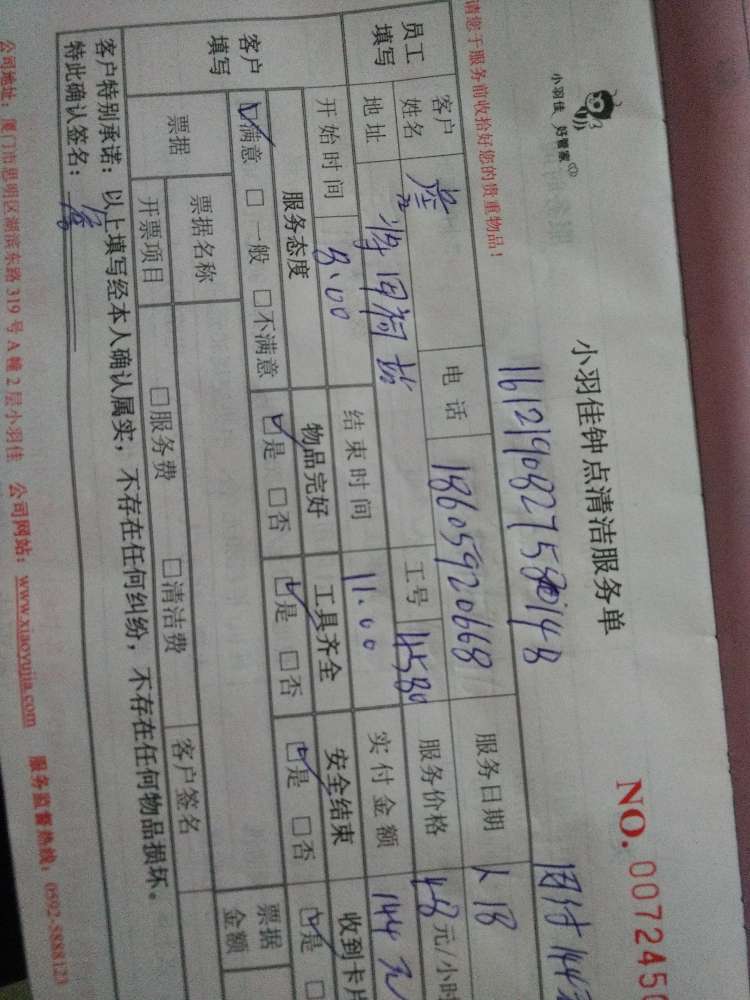 小羽佳 好管家
小羽佳钟点清洁服务单
NO.0072450
请您于服务前收拾好您的贵重物品!
员工填写
客户姓名
电话 18605920668
服务日期
地址
工号 4580
服务价格 48元/小时
开始时间 8:00
结束时间 11.00
实付金额 144元
客户填写
服务态度
物品完好
工具齐全
安全结束
收到卡片
☑满意 □一般 □不满意
☑是 □否
☑是 □否
☑是 □否
☑是 □
票据
票据名称
□服务费 □清洁费
票据金额
开票项目
客户签名
客户特别承诺:以上填写经本人确认属实,不存在任何纠纷,不存在任何物品损坏。
特此确认签名:
公司地址:厦门市思明区湖滨东路319号A幢2层小羽佳 公司网站:www.xiaoyujia.com 服务监督热线:0592-5888123